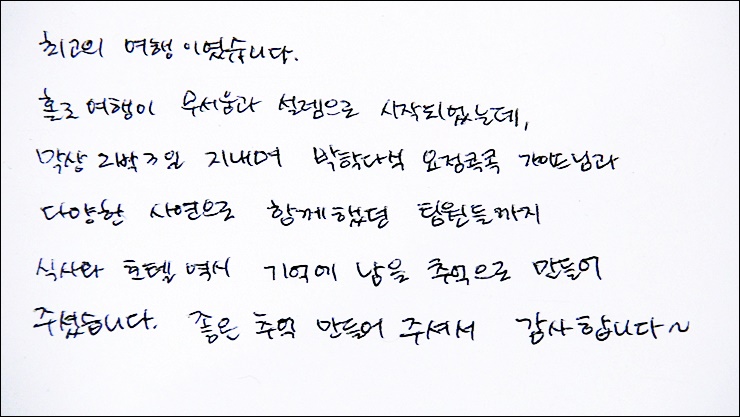 최고의 여행이였습니다.
홀로 여행이 무서움과 설렘으로 시작되었는데,
막상 2박3일 지내며 박학다식 요정콕콕 가이드님과
다양한 사연으로 함께했던 팀원들까지
식사와 호텔 역시 기억에 남을 추억으로 만들어
주셨습니다. 좋은 추억 만들어 주셔서 감사합니다~